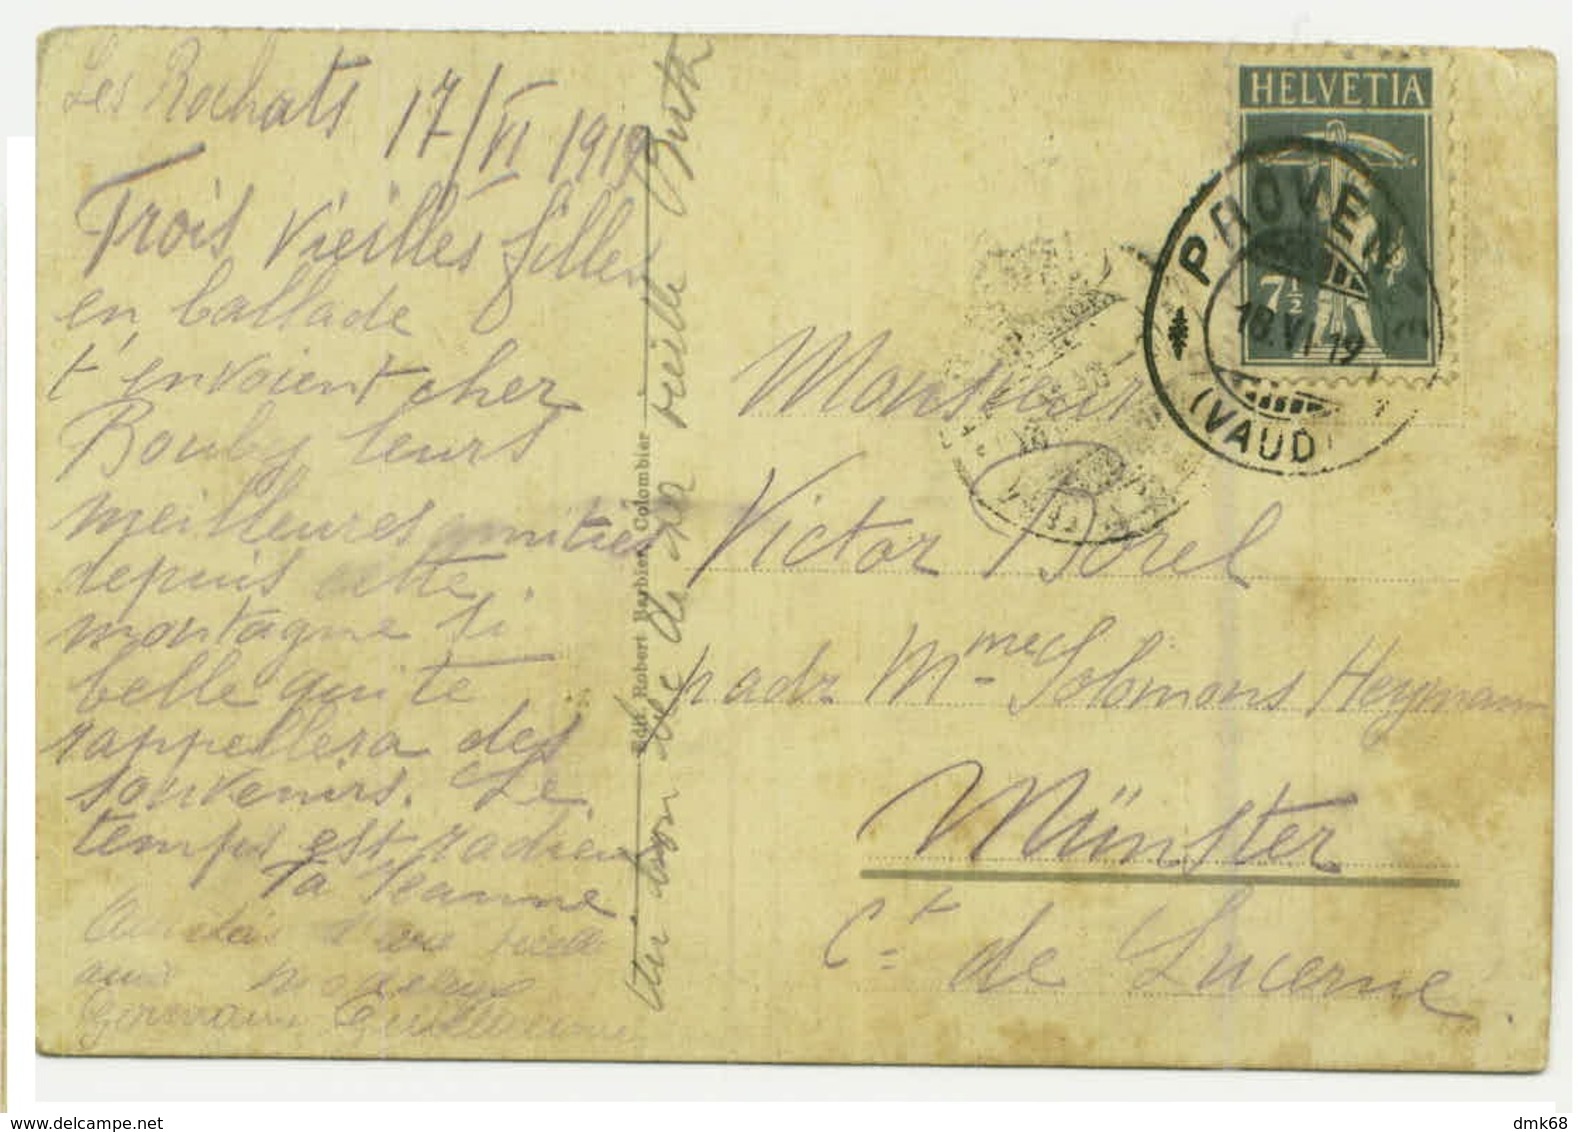 Les Rochats 17/VI 1919
Trois vieilles filles
en ballade
t'envoient cher
Bouby leurs
meilleures amitiés
depuis cette
montagne si
belle qui te
rappellera des
souvenirs. Le
temps est radieux
Ta Jeanne
d'une vieille
Germaine Guillaume
un bon de la vieille Ruth
Edit. Robert Barbier, Colombier
HELVETIA
7½
PROVENCE
18.VI.19
(VAUD)
Monsieur
Victor Borel
p adr Mme Solomons Heymann
Münster
Ct de Lucerne.
dmk68